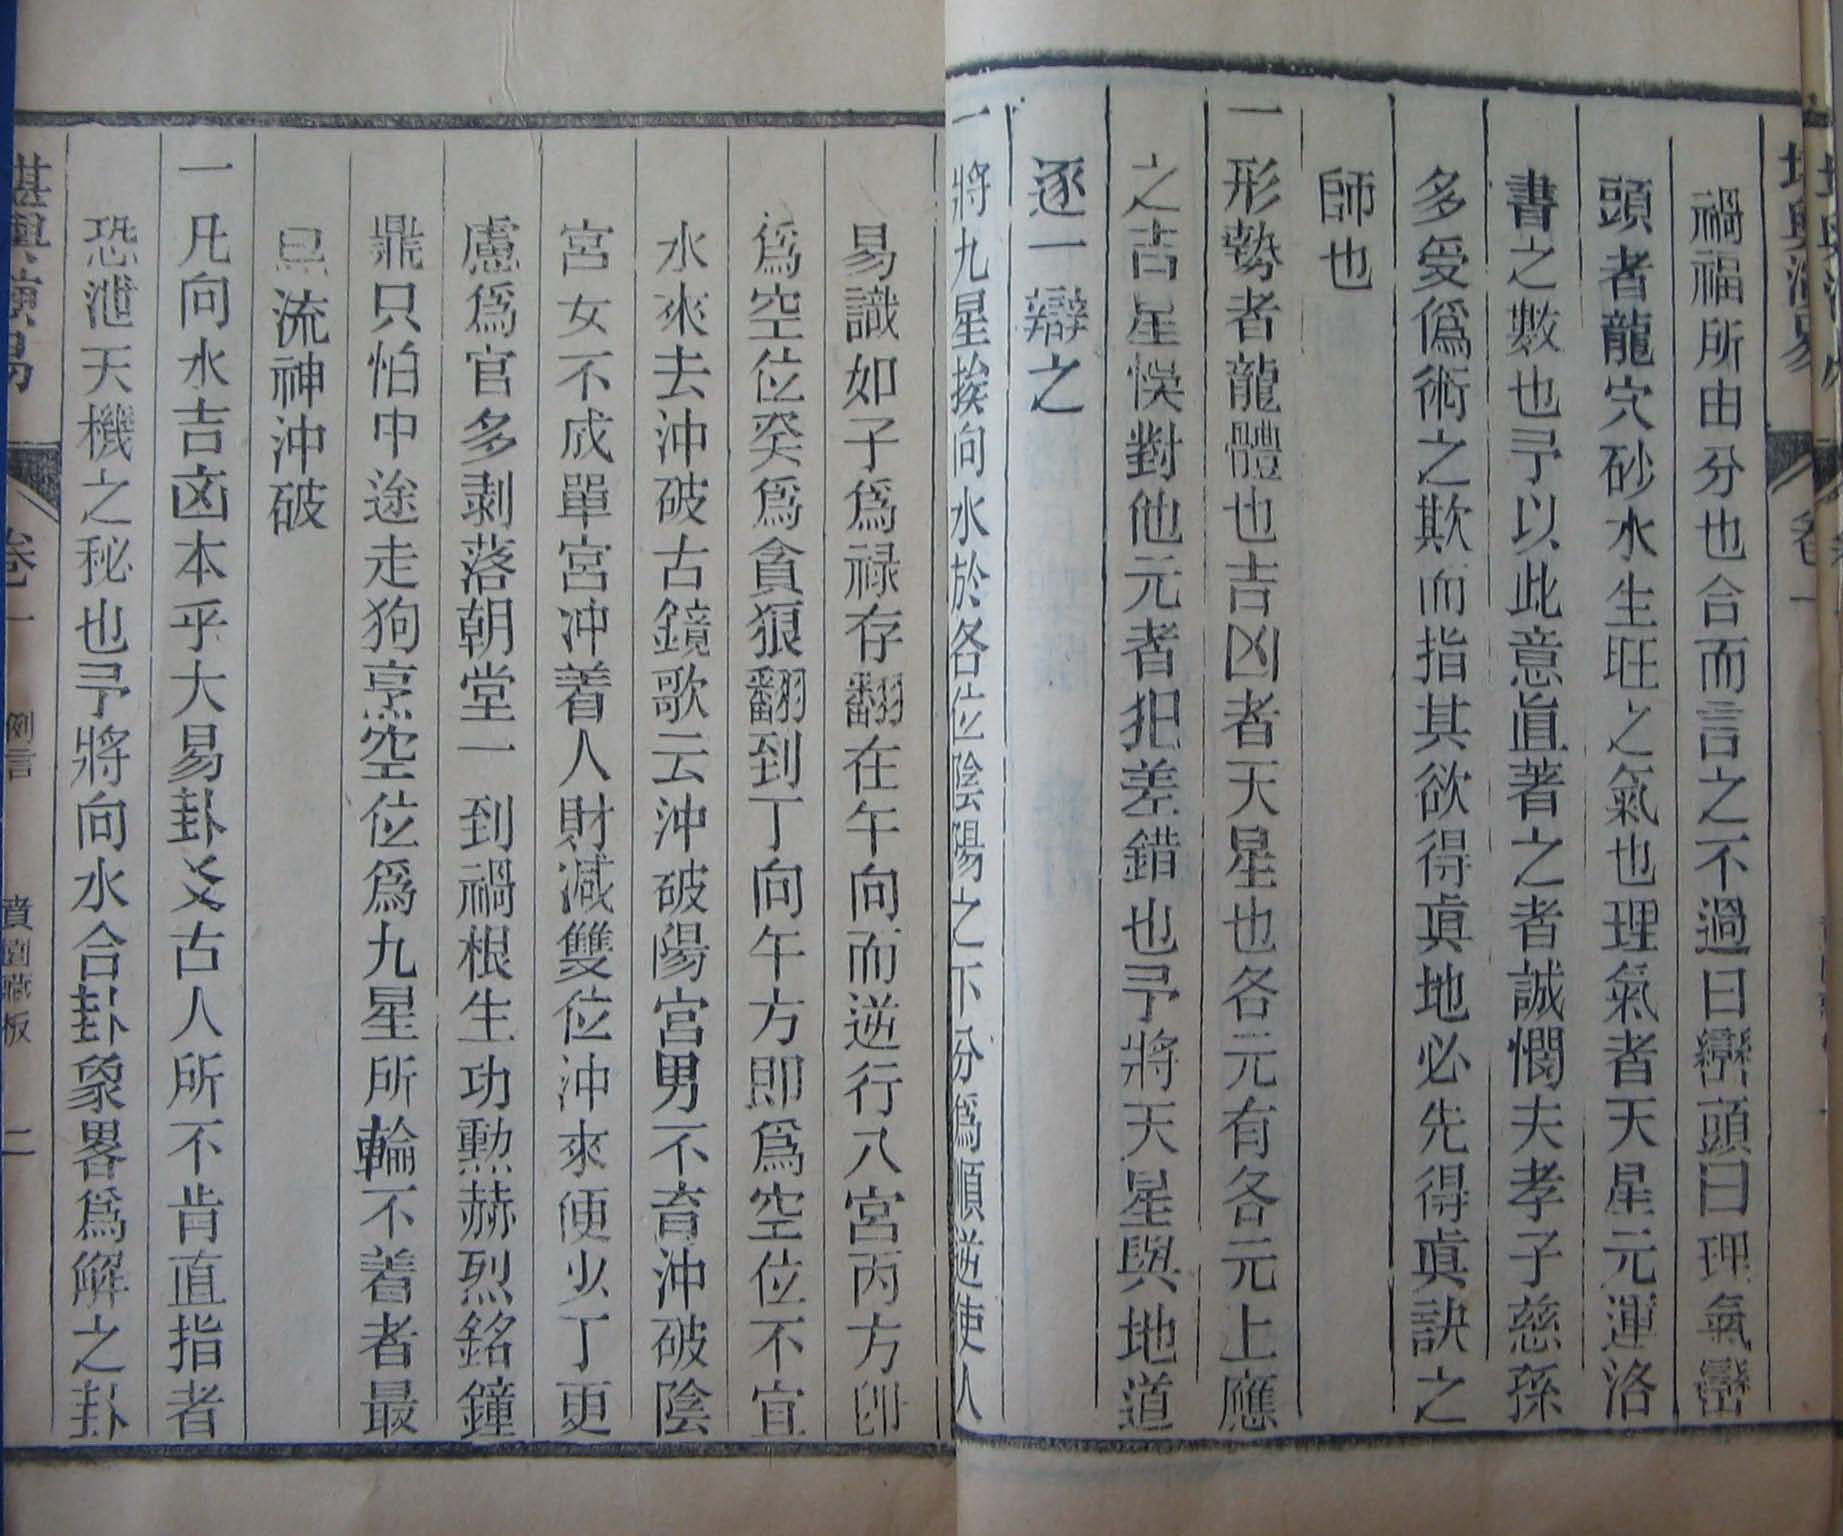 禍福所由分也合而言之不過曰巒頭曰理氣巒
頭者龍穴砂水生旺之氣也理氣者天星元運洛
書之數也予以此意眞著之者誠憫夫孝子慈孫
多受僞術之欺而指其欲得眞地必先得眞訣之
師也
一形勢者龍體也吉凶者天星也各元有各元上應
之吉星悞對他元者犯差錯也予將天星與地道
逐一辯之
一將九星挨向水於各位陰陽之下分爲順逆使人
易識如子爲禄存翻在午向而逆行八宮丙方卽
爲空位癸爲貪狼翻到丁向午方即爲空位不宜
水來去沖破古鏡歌云沖破陽宮男不育沖破陰
宮女不成單宮沖着人財減雙位沖來便少丁更
慮爲官多剥落朝堂一到禍根生功勲赫烈銘鐘
鼎只怕中途走狗烹空位爲九星所輪不着者最
忌流神沖破
一凡向水吉凶本乎大易卦爻古人所不肯直指者
恐泄天機之秘也予將向水合卦象畧爲解之卦
堪輿演易
卷一
例言
二